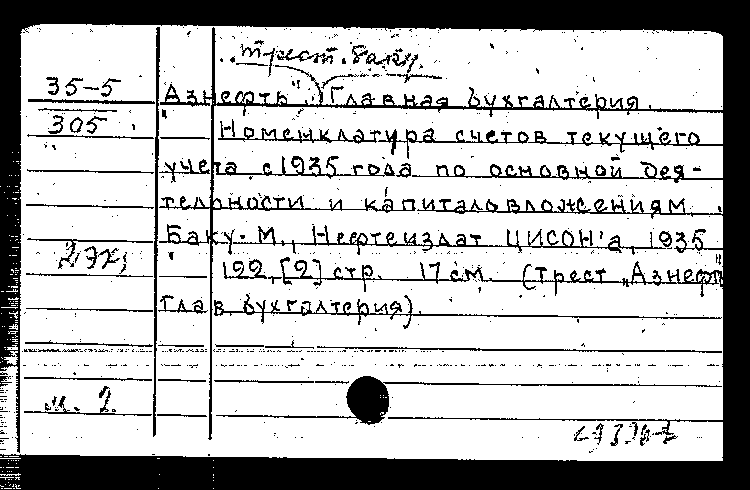 трест. Баку.
35-5
Азнефть". Главная бухгалтерия.
305
Номенклатура счетов текущего
учета с 1935 года по основной дея-
тельности и капиталовложениям.
Баку-М., Нефтеиздат ЦИСОН'а, 1935
2 экз.
122, [2] стр. 17 см. (Трест „Азнефть"
Глав бухгалтерия).
м. 2.